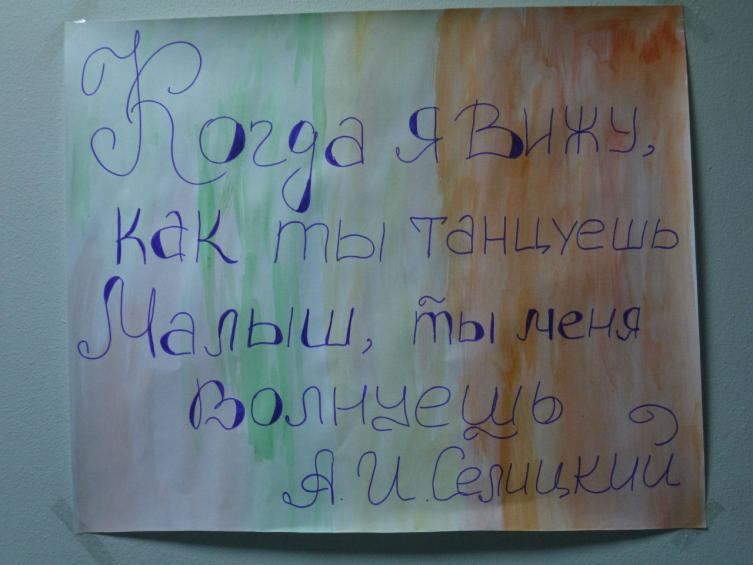 Когда я вижу,
как ты танцуешь
Малыш, ты меня
волнуешь
А. И. Селицкий